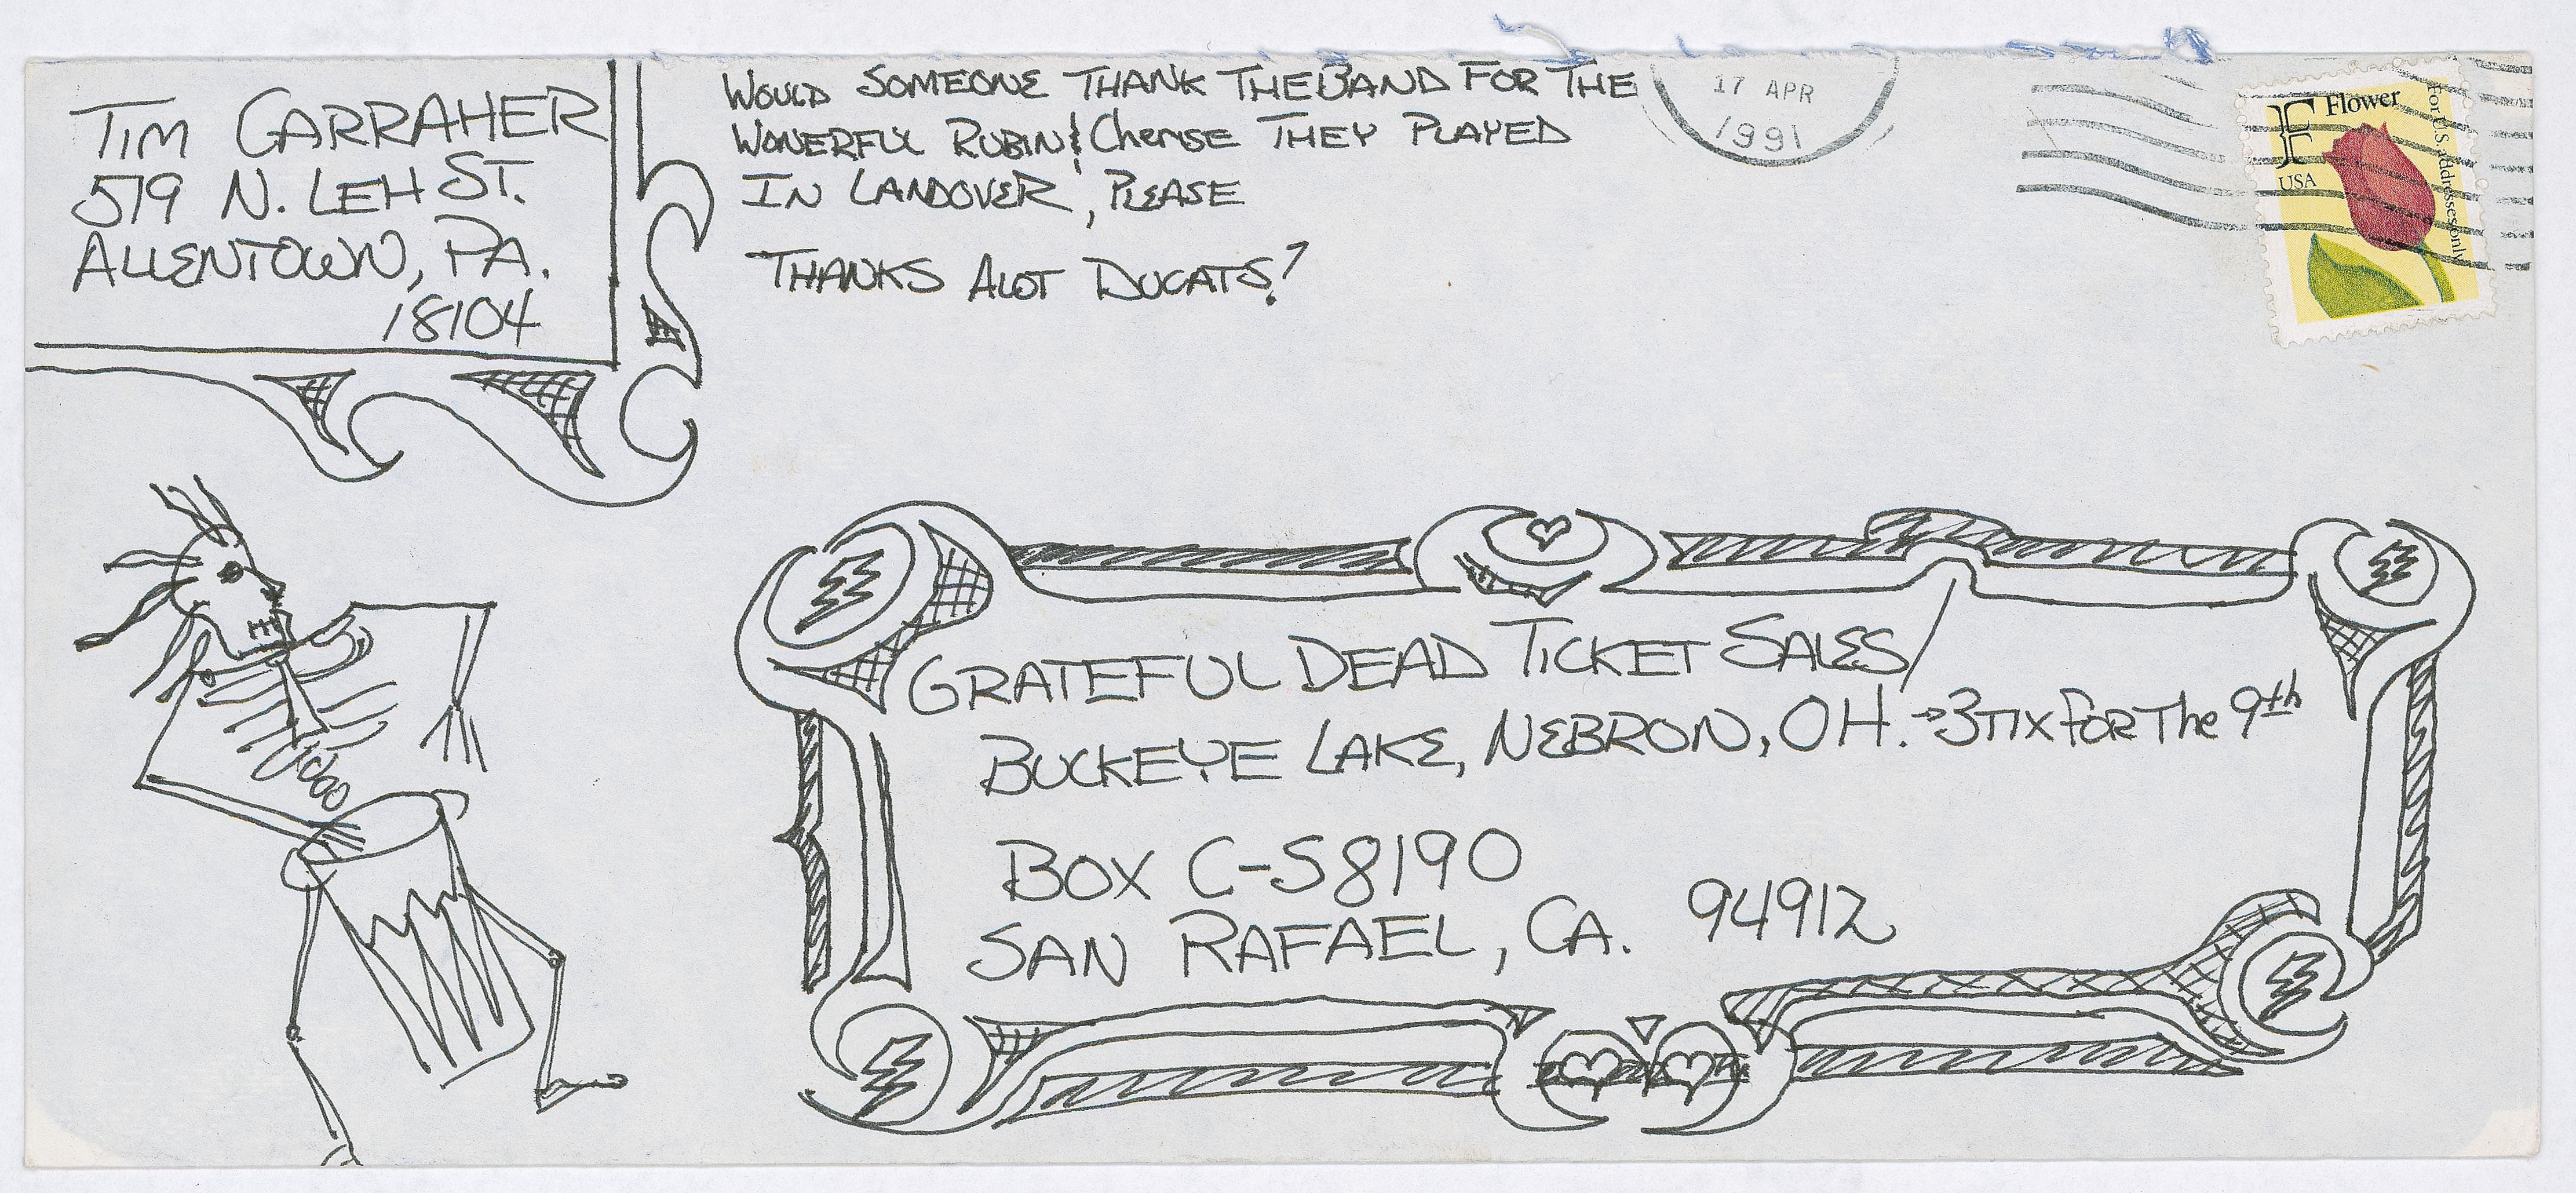 TIM CARRAHER
519 N. LEH ST.
ALLENTOWN, PA.
18104
WOULD SOMEONE THANK THE BAND FOR THE
WONERFUL RUBIN & Cherise THEY PLAYED
IN LANDOVER, PLEASE
THANKS ALOT DUCATS!
17 APR
1991
F Flower
USA
For U.S. addresses only
GRATEFUL DEAD TICKET SALES/
BUCKEYE LAKE, NEBRON, OH. → 3 TIX FOR The 9th
BOX C-S8190
SAN RAFAEL, CA. 94912